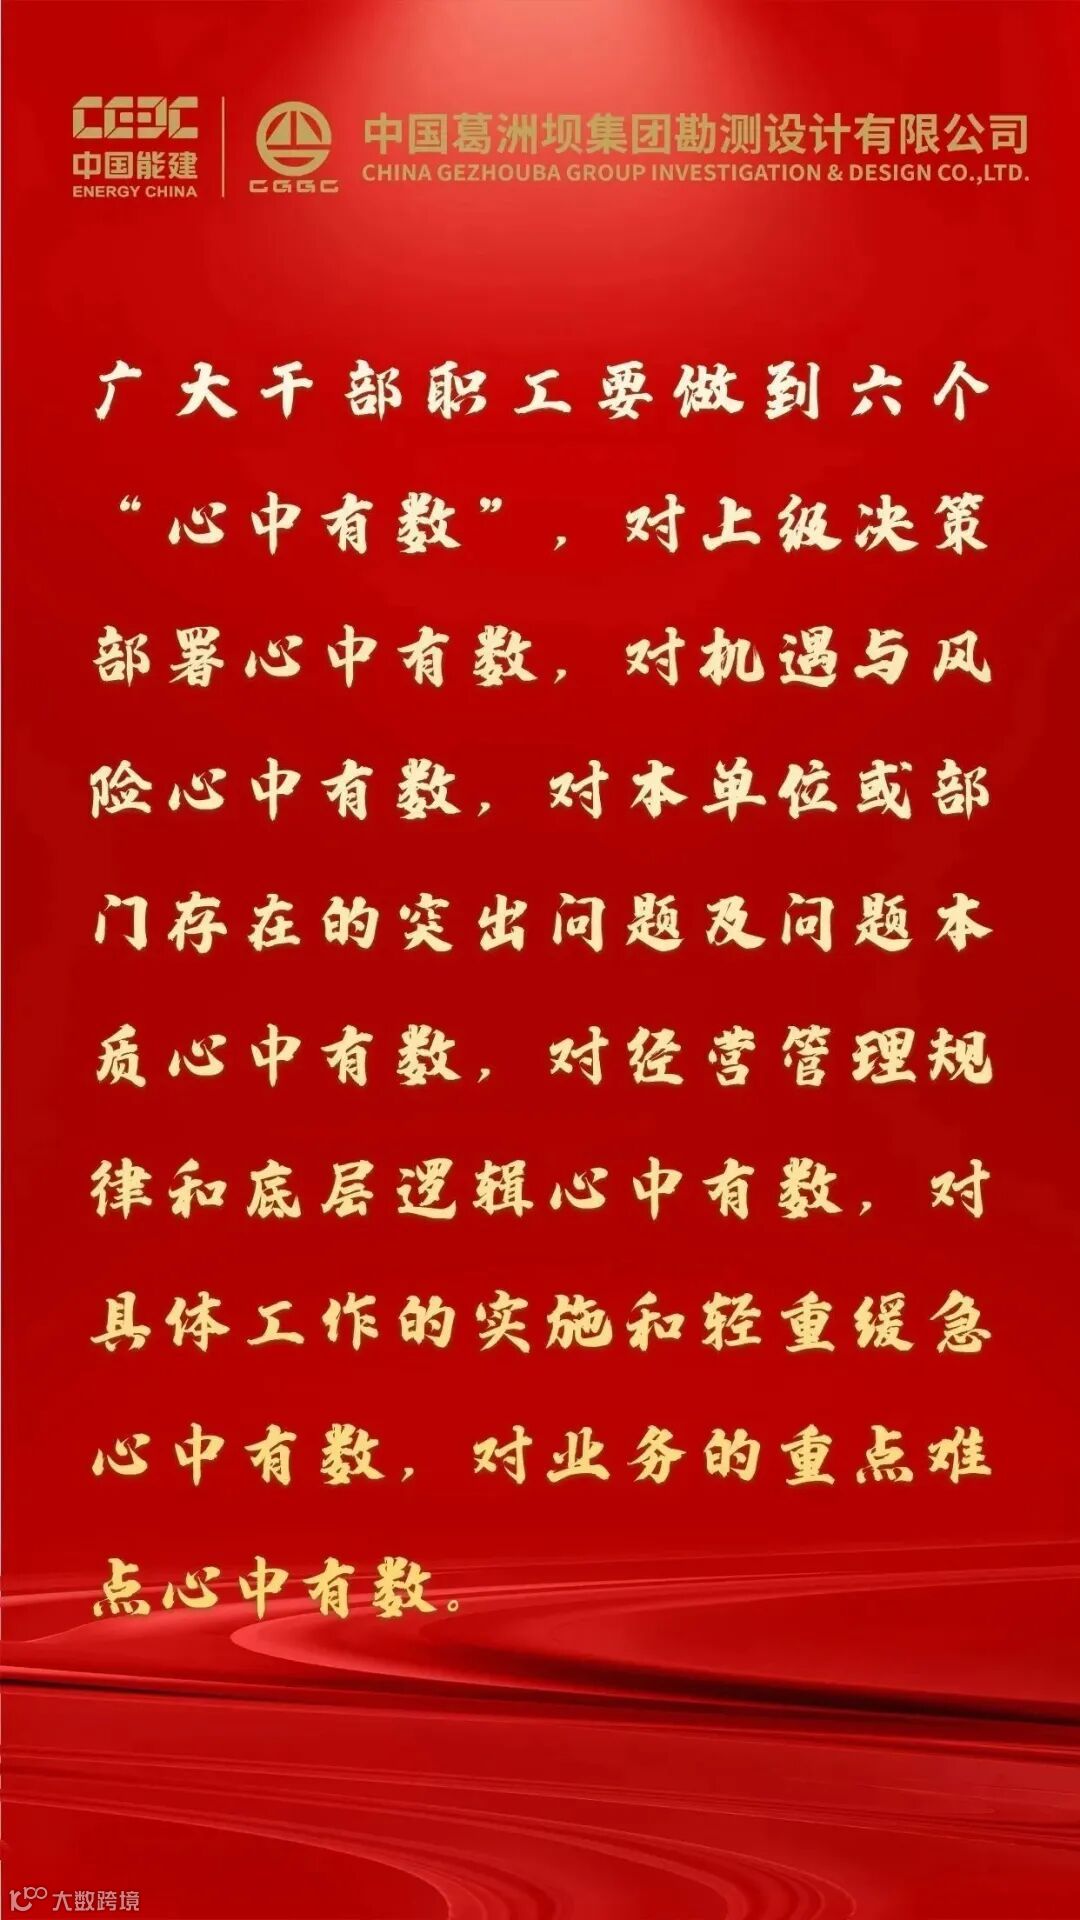 CEEC
中国能建
ENERGY CHINA
CGGC
中国葛洲坝集团勘测设计有限公司
CHINA GEZHOUBA GROUP INVESTIGATION & DESIGN CO.,LTD.
广大干部职工要做到六个
“心中有数”，对上级决策
部署心中有数，对机遇与风
险心中有数，对本单位或部
门存在的突出问题及问题本
质心中有数，对经营管理规
律和底层逻辑心中有数，对
具体工作的实施和轻重缓急
心中有数，对业务的重点难
点心中有数。
大数跨境